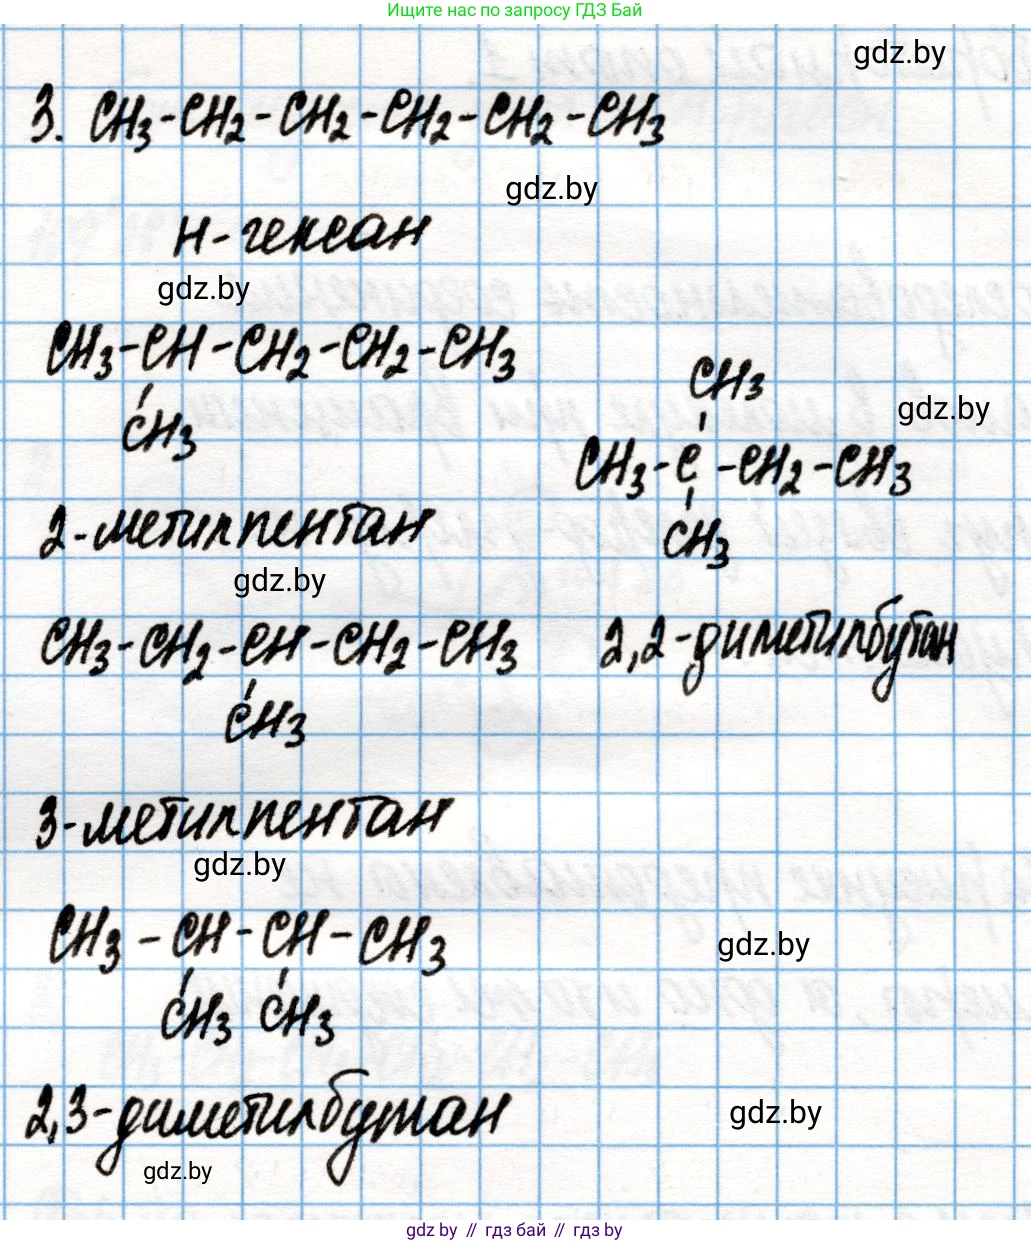 Ищите нас по запросу ГДЗ Бай
gdz.by
3. CH3-CH2-CH2-CH2-CH2-CH3
gdz.by
н-гексан
gdz.by
CH3-CH-CH2-CH2-CH3
CH3
2-метилпентан
gdz.by
CH3
gdz.by
CH3-C-CH2-CH3
CH3
2,2-диметилбутан
CH3-CH2-CH-CH2-CH3
CH3
3-метилпентан
gdz.by
CH3-CH-CH-CH3
gdz.by
CH3 CH3
2,3-диметилбутан
gdz.by
gdz.by
gdz.by // гдз бай // гдз by